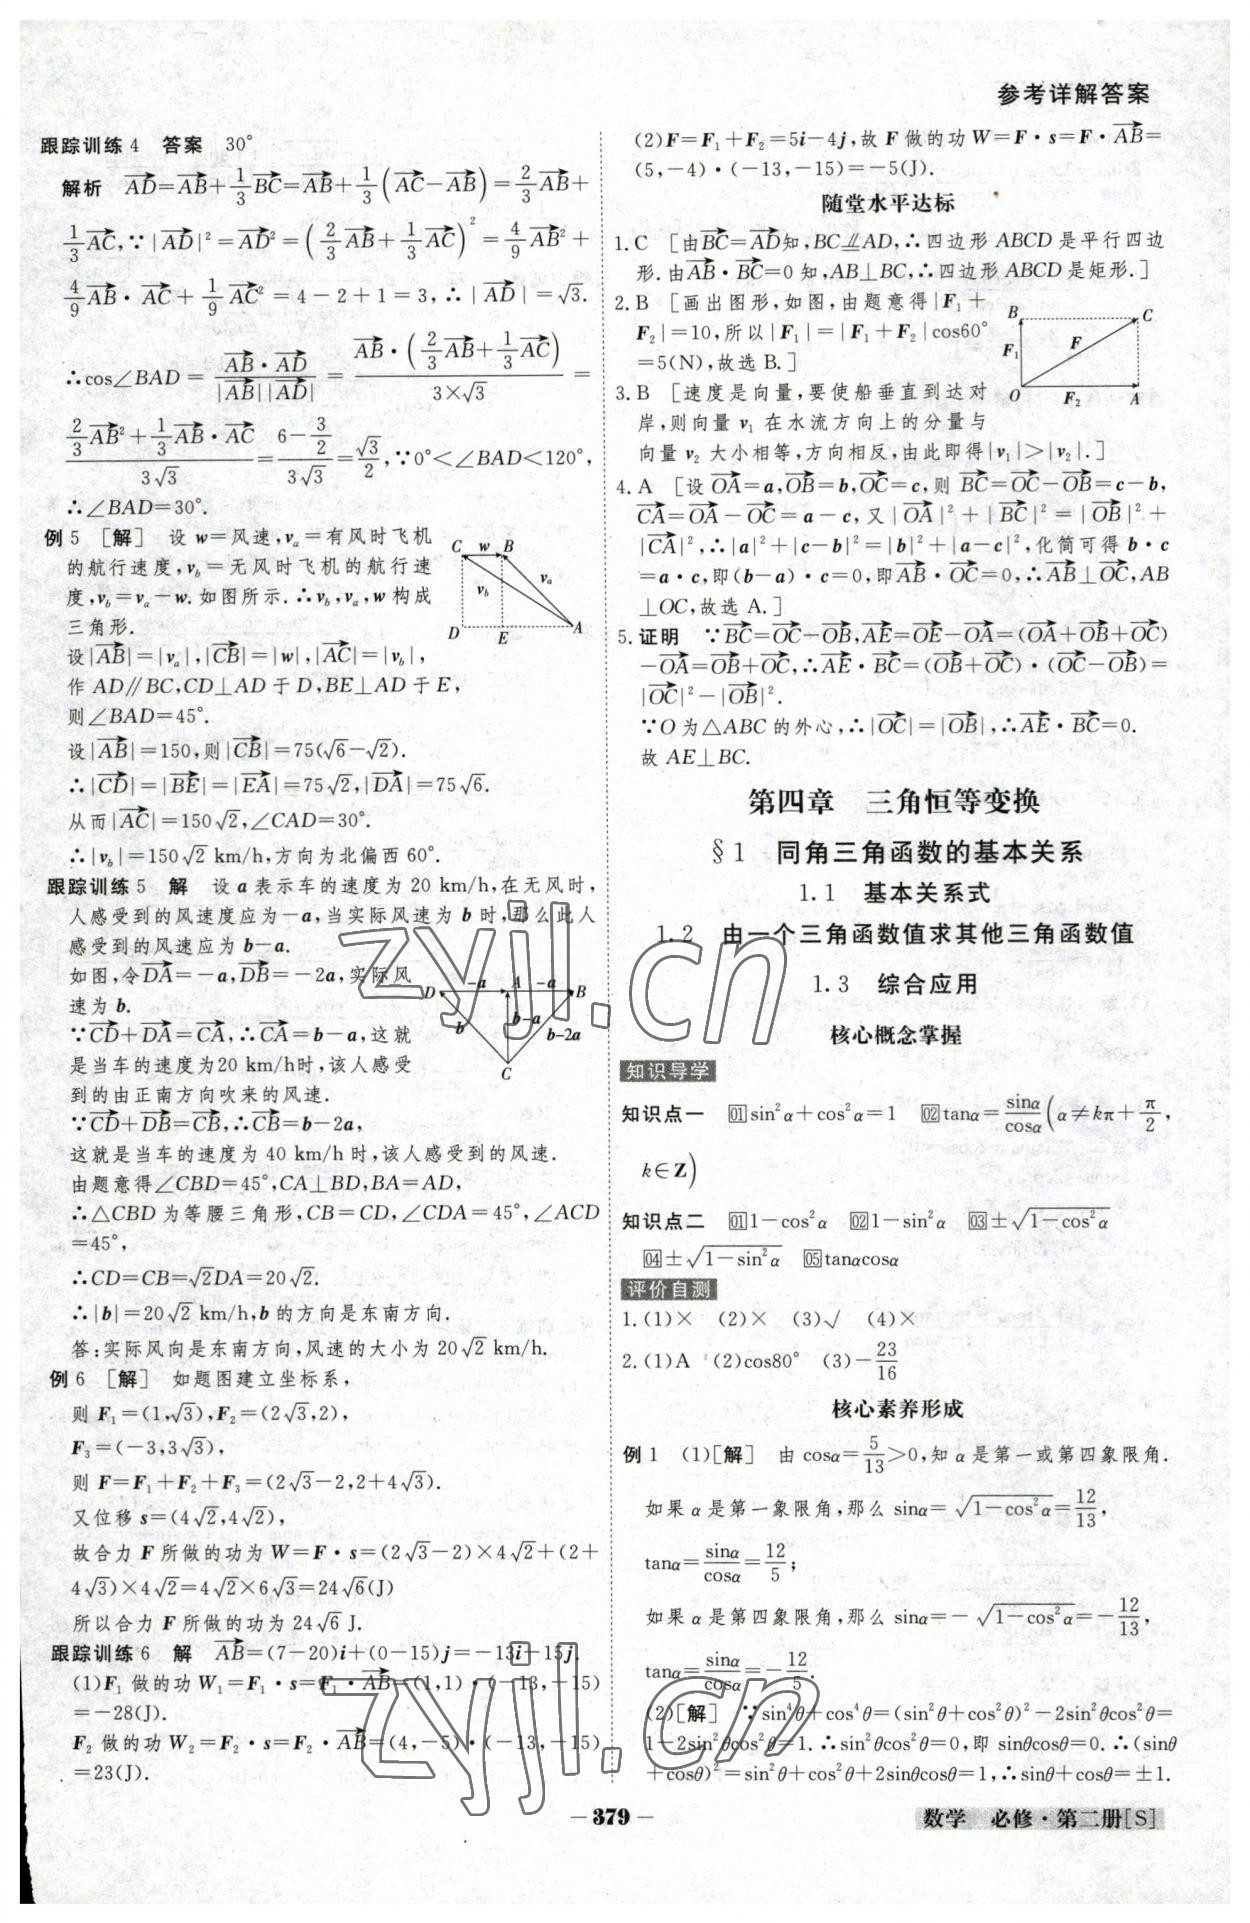 参考详解答案
跟踪训练4 答案 30°
解析 AD=AB+1/3BC=AB+1/3(AC-AB)=2/3AB+
1/3AC,∵|AD|²=AD²=(2/3AB+1/3AC)²=4/9AB²+
4/9AB·AC+1/9AC²=4-2+1=3,∴|AD|=√3.
∴cos∠BAD=AB·AD/|AB||AD|=AB·(2/3AB+1/3AC)/3×√3=
2/3AB²+1/3AB·AC/3√3=6-3/2/3√3=√3/2,∵0°<∠BAD<120°,
∴∠BAD=30°.
例5 [解] 设w=风速,vₐ=有风时飞机
的航行速度,v_b=无风时飞机的航行速
度,v_b=vₐ-w.如图所示.∴v_b,vₐ,w构成
三角形.
C w B
v_b vₐ
D E A
设|AB|=|vₐ|,|CB|=|w|,|AC|=|v_b|,
作AD∥BC,CD⊥AD于D,BE⊥AD于E,
则∠BAD=45°.
设|AB|=150,则|CB|=75(√6-√2).
∴|CD|=|BE|=|EA|=75√2,|DA|=75√6.
从而|AC|=150√2,∠CAD=30°.
∴|v_b|=150√2 km/h,方向为北偏西60°.
跟踪训练5 解 设a表示车的速度为20 km/h,在无风时,
人感受到的风速度应为-a,当实际风速为b时,那么此人
感受到的风速应为b-a.
如图,令DA=-a,DB=-2a,实际风
速为b.
D -a A -a B
b b-a b-2a
C
∵CD+DA=CA,∴CA=b-a,这就
是当车的速度为20 km/h时,该人感受
到的由正南方向吹来的风速.
∵CD+DB=CB,∴CB=b-2a,
这就是当车的速度为40 km/h时,该人感受到的风速.
由题意得∠CBD=45°,CA⊥BD,BA=AD,
∴△CBD为等腰三角形,CB=CD,∠CDA=45°,∠ACD
=45°,
∴CD=CB=√2DA=20√2.
∴|b|=20√2 km/h,b的方向是东南方向.
答:实际风向是东南方向,风速的大小为20√2 km/h.
例6 [解] 如题图建立坐标系,
则F₁=(1,√3),F₂=(2√3,2),
F₃=(-3,3√3),
则F=F₁+F₂+F₃=(2√3-2,2+4√3).
又位移s=(4√2,4√2),
故合力F所做的功为W=F·s=(2√3-2)×4√2+(2+
4√3)×4√2=4√2×6√3=24√6(J)
所以合力F所做的功为24√6 J.
跟踪训练6 解 AB=(7-20)i+(0-15)j=-13i-15j.
(1)F₁做的功W₁=F₁·s=F₁·AB=(1,1)·(-13,-15)
=-28(J).
F₂做的功W₂=F₂·s=F₂·AB=(4,-5)·(-13,-15)
=23(J).
(2)F=F₁+F₂=5i-4j,故F做的功W=F·s=F·AB=
(5,-4)·(-13,-15)=-5(J).
随堂水平达标
1.C [由BC=AD知,BC∥AD,∴四边形ABCD是平行四边
形.由AB·BC=0知,AB⊥BC,∴四边形ABCD是矩形.]
2.B [画出图形,如图,由题意得|F₁+
F₂|=10,所以|F₁|=|F₁+F₂|cos60°
=5(N),故选B.]
B C
F₁ F
O F₂ A
3.B [速度是向量,要使船垂直到达对
岸,则向量v₁在水流方向上的分量与
向量v₂大小相等,方向相反,由此即得|v₁|>|v₂|.]
4.A [设OA=a,OB=b,OC=c,则BC=OC-OB=c-b,
CA=OA-OC=a-c,又|OA|²+|BC|²=|OB|²+
|CA|²,∴|a|²+|c-b|²=|b|²+|a-c|²,化简可得b·c
=a·c,即(b-a)·c=0,即AB·OC=0,∴AB⊥OC,AB
⊥OC,故选A.]
5.证明 ∵BC=OC-OB,AE=OE-OA=(OA+OB+OC)
-OA=OB+OC,∴AE·BC=(OB+OC)·(OC-OB)=
|OC|²-|OB|².
∵O为△ABC的外心,∴|OC|=|OB|,∴AE·BC=0.
故AE⊥BC.
第四章 三角恒等变换
§1 同角三角函数的基本关系
1.1 基本关系式
1.2 由一个三角函数值求其他三角函数值
1.3 综合应用
核心概念掌握
知识导学
知识点一 01 sin²α+cos²α=1 02 tanα=sinα/cosα(α≠kπ+π/2,
k∈Z)
知识点二 01 1-cos²α 02 1-sin²α 03 ±√(1-cos²α)
04 ±√(1-sin²α) 05 tanαcosα
评价自测
1.(1)× (2)× (3)√ (4)×
2.(1)A (2)cos80° (3)-23/16
核心素养形成
例1 (1)[解] 由cosα=5/13>0,知α是第一或第四象限角.
如果α是第一象限角,那么sinα=√(1-cos²α)=12/13,
tanα=sinα/cosα=12/5;
如果α是第四象限角,那么sinα=-√(1-cos²α)=-12/13,
tanα=sinα/cosα=-12/5.
(2)[解] ∵sin⁴θ+cos⁴θ=(sin²θ+cos²θ)²-2sin²θcos²θ=
1-2sin²θcos²θ=1.∴sin²θcos²θ=0,即sinθcosθ=0.∴(sinθ
+cosθ)²=sin²θ+cos²θ+2sinθcosθ=1,∴sinθ+cosθ=±1.
zyjl.cn
zyjl.cn
－379－
数学 必修·第二册[S]